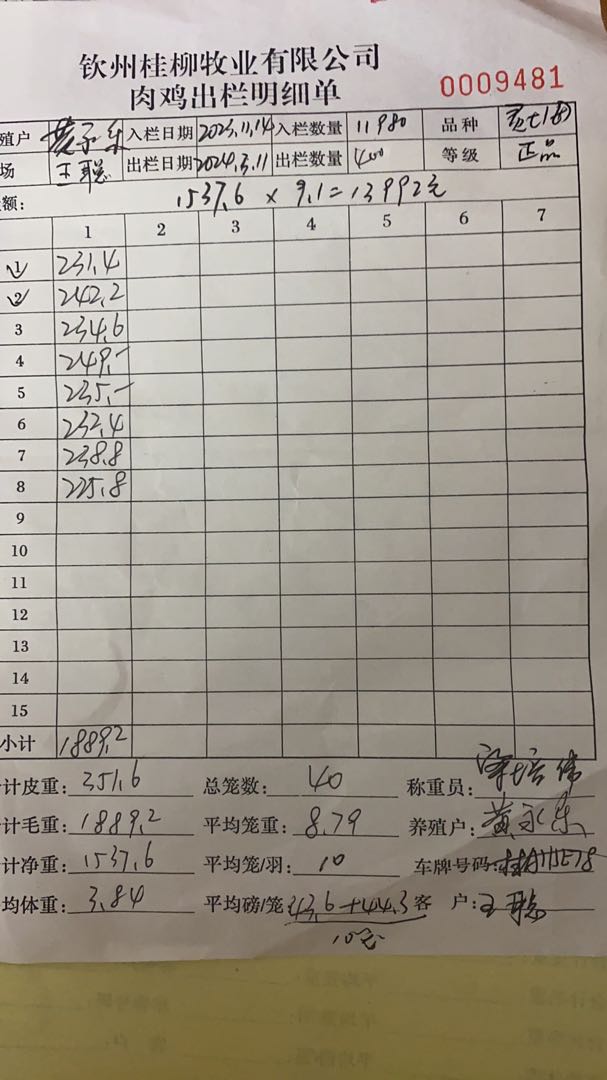 钦州桂柳牧业有限公司
肉鸡出栏明细单 0009481
殖户 黄永东 入栏日期 2023.11.14 入栏数量 11980 品种
场 王聪 出栏日期 2024.3.11 出栏数量 400 等级 正品
额: 1537.6 × 9.1 = 13992元
1 2 3 4 5 6 7
1 231.4
2 242.2
3 234.6
4 249.-
5 235.-
6 232.4
7 238.8
8 225.8
9
10
11
12
13
14
15
小计 1889.2
计皮重: 351.6 总笼数: 40 称重员: 培伟
计毛重: 1889.2 平均笼重: 8.79 养殖户: 黄永东
计净重: 1537.6 平均笼/羽: 10 车牌号码:
均体重: 3.84 平均磅/笼 43.6+44.3 客 户: 王聪
10元